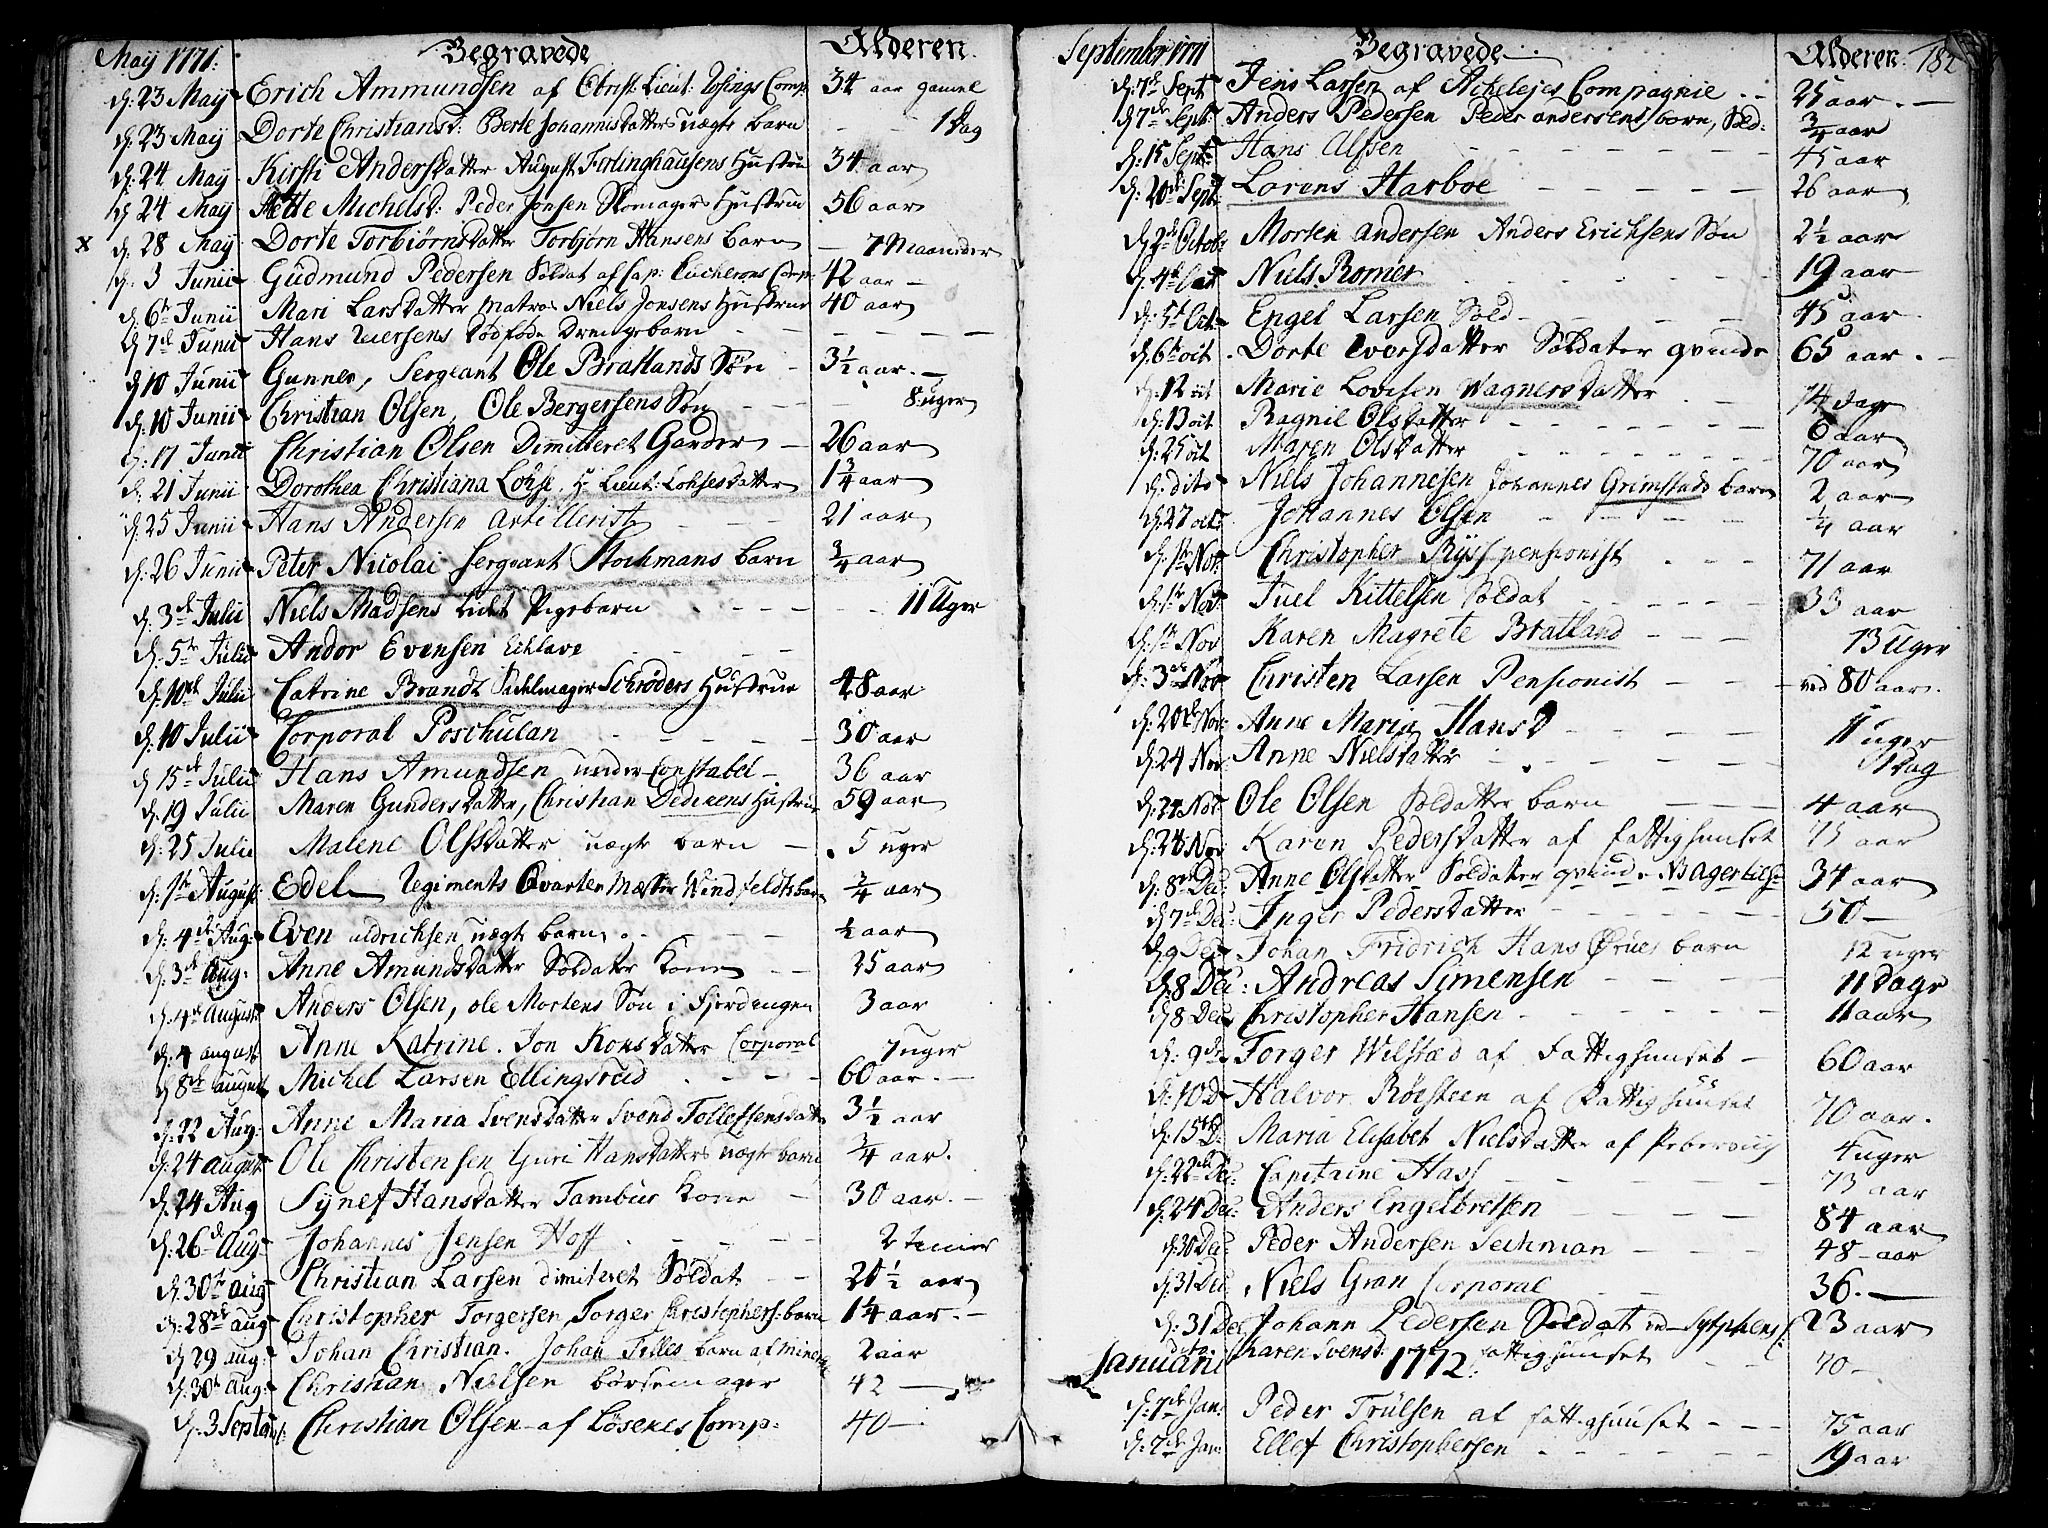 May 1771. Begravede Alderen.
d: 23 May Erich Ammundsen af Obrist: Lieut: Comp: 34 aar gamel
d: 23 May Dorte Christiansd: Berte Johannisdatters uægte barn - - 1 Dag
d: 24 May Kirsti Andersdatter August Ferlinghausens Hustrue 34 aar
d: 24 May Mette Michelsd: Peder Jonsen Skomagers Hustrue 56 aar
x d: 28 May Dorte Torbiørnsdatter Torbjørn Hansens barn - 7 Maaneder
d: 3 Junii Gudmund Pedersen Soldat af Cap: Comp: 42 aar -
d: 6te Junii Mari Larsdatter matros Niels Jonsens Hustrue 40 aar
d: 7de Junii Hans Iversens dødføde Drengebarn - - - -
d: 10 Junii Gunner, Sergeant Ole Bratlands Søn - 3½ aar. -
d: 10 Junii Christian Olsen, Ole Bergersens Søn - - - 8 uger
d: 17 Junii Christian Olsen Dimitteret Garder - 26 aar
d: 21 Junii Dorothea Christiana Lohse, Hr Lieut: Lohses datter 1¾ aar
d: 25 Junii Hans Andersen Artillerist - - - 21 aar
d: 26 Junii Peter Nicolai Sergeant Stockmans barn ¾ aar
d: 3de Julii Niels Madsens Lidet Pigebarn - - - - 11 Uger
d: 5te Julii Andor Evensen - - - -
d: 10de Julii Catrine Brandt Sadelmager Schrøders Hustrue 48 aar
d: 10 Julii Corporal Poschulan - - - - - 30 aar
d: 15de Julii Hans Amundsen under Constabel - 36 aar
d: 19 Julii Maren Gundersdatter, Christian Dedekens Hustrue 59 aar
d: 25 Julii Malene Olssdatter uægte barn - 5 uger
d: 1te August: Edel Regiments Qvarteer Mæster Windfeldts barn ¾ aar
d: 4de Aug: Even uldrichsen uægte barn. - - - ½ aar
d: 3de Aug. Anne Amundsdatter Soldater Kone - - 25 aar
d: 4de Augusti Anders Olsen, ole Mortens Søn i Fjerdingen 3 aar
d: 4 august Anne Katrine. Jon datter Corporal 7 uger
d: 8de august Michel Larsen Ellingsrud - - - - 60 aar. -
d: 22 Aug: Anne Maria Svensdatter Svend Tollefsens datter 3½ aar
d: 24 august Ole Christensen Guri Hansdatters uægte barn ¾ aar.
d: 24 Aug Synef Hansdatter Tambur Kone - 30 aar. -
d: 26de Aug: Johannes Jensen Hoff - - - - 2 timer
d: 30te aug Christian Larsen dimiteret Soldat - - 20½ aar
d: 28de aug Christopher Torgersen, Torger Christophers: barn 1¼ aar. -
d: 29 aug: Johan Christian. Johan Tilles barn af 2 aar
d: 30te aug: Christian Nielsen børsemager 42 -
d: 3 Septembr: Christian Olsen af Løsenes Comp: 40 -
September 1771 Begravede Alderen. 182
d: 7de Sept: Jens Larsen af Achelejes Compagnie - - 25 aar. -
d: 7de Septbr: Anders Pedersen Peder andersens barn, Sold: ¾ aar
d: 15 Sept: Hans Alssen - - - - - - - 45 aar
d: 20de Sept: Lorens Harboe - - - - - 26 aar
d: 2de Octob: Morten andersen Anders Erichsens Søn 2½ aar
d: 4de Oct Niels Romer - - - - - - 19 aar
d: 5te Oct. Engel Larsen Sold - - - - 45 aar
d: 6te oct. Dorte Iversdatter Soldater qvinde 65 aar. -
d: 12 oct Marie Lovisen Wagners datter - - 14 dage
d: 13 oct Ragnil Olsdatter - - - - - 6 aar
d: 25 oct Maren Olsdatter - - - - - - 70 aar
d: dito Niels Johannesen Johannes Grimstads barn 2 aar
d: 27 oct: Johannes Olsen - - - - - ¼ aar
d: 1te Nov: Christopher Ryss pensionist - - - 71 aar
d: 1te Nov: Juel Kittelsen Soldat - - - - - 33 aar
d: 1te Nov Karen Magrete Bratland - - - 13 Uger
d: 3de Nov Christen Larsen Pensionist - - - ved 80 aar.
d: 20de Nov: Anne Maria Hansd - - - - 11 uger
d: 24 Nov: Anne Nielsdatter - - - - - 1 Dag
d: 24 Nov: Ole Olsen Soldatter barn - - - 4 aar
d: 28 Nov Karen Pedersdatter af fattighuuset 75 aar
d: 8de Dec: Anne Olsdatter Soldater qvinde. 34 aar
d: 7de Dec: Inger Pedersdatter - - - - - - 50 -
d: 9 Dec: Johan Fridrich Hans barn 12 uger
d: 8 Dec: Andreas Simensen - - - - 11 Dage
d: 8 Dec Christopher Hansen - - - - - - 11 aar
d: 9de Torger Wilstad af Fattighuuset - 60 aar
d: 10 D Halvor Røesteen af Fattighuuset 70 aar.
d: 15de D: Maria Elisabet Nielsdatter af Pebervig 4 uger
d: 22de Dec: Capitaine Hass - - - - - - 73 aar
d: 24 Dec: Anders Engelbretsen - - - - 84 aar
d: 30 Dec: Peder Andersen Sechman - - - 48 aar
d: 31 Dec Niels Gran Corporal - - - 36. -
d: 31 Dec Johann Pedersen Soldat 23 aar
dito Karen Svensd: fattighuuset - - 70 -
Januarii 1772.
d: 7de Jan: Peder Trulsen af fattighuuset - - - 75 aar
d: 7de Jan: Ellef Christophersen - - - - - 19 aar